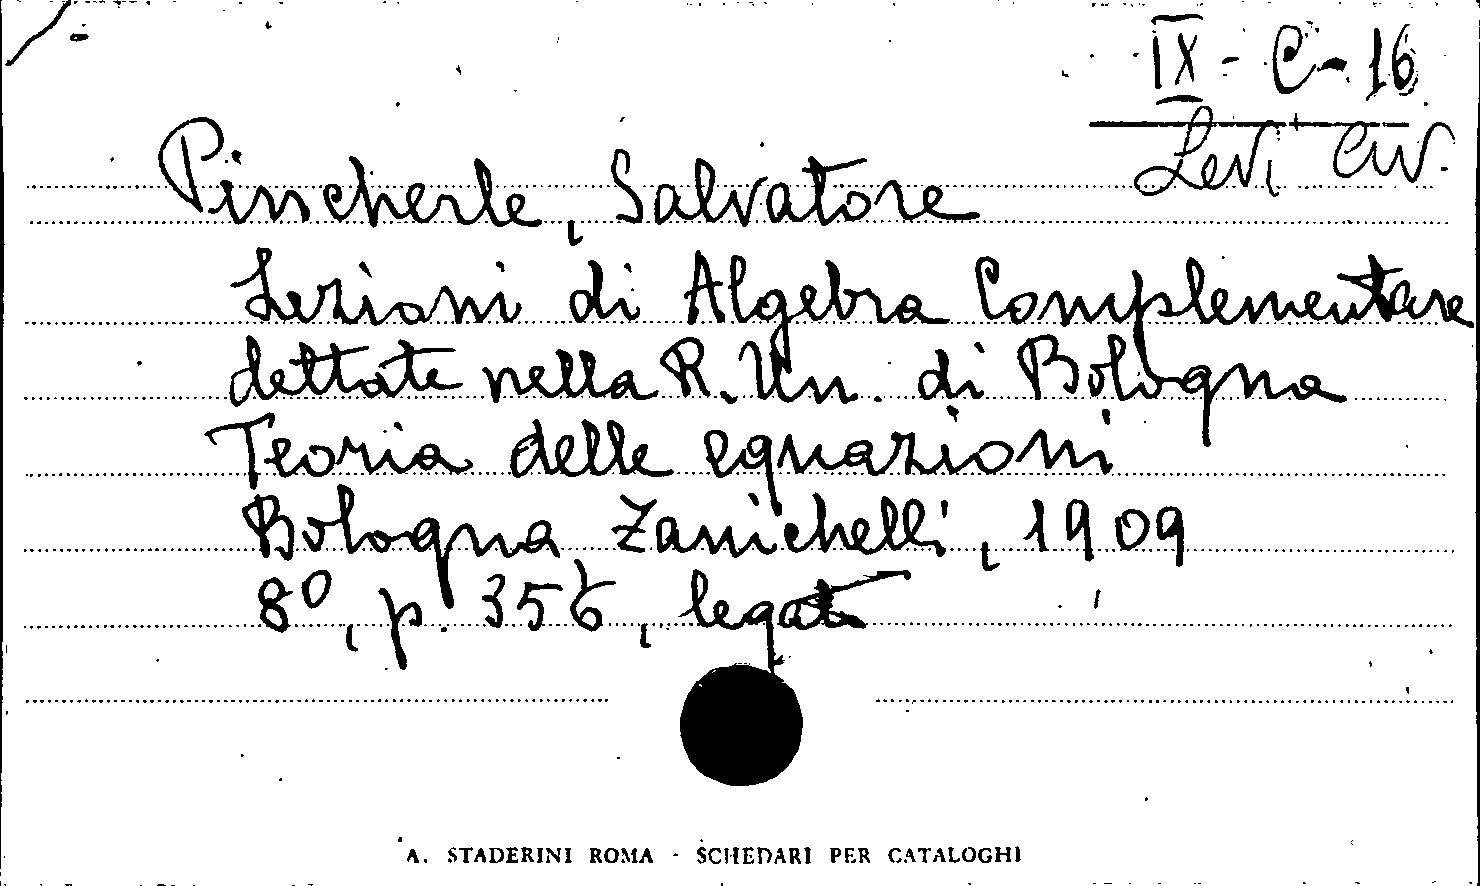 IX - C - 16
Levi Civ.
Pincherle, Salvatore
Lezioni di Algebra Complementare
dettate nella R. Un. di Bologna
Teoria delle equazioni
Bologna Zanichelli, 1909
8º, p. 356, legat
A. STADERINI ROMA - SCHEDARI PER CATALOGHI